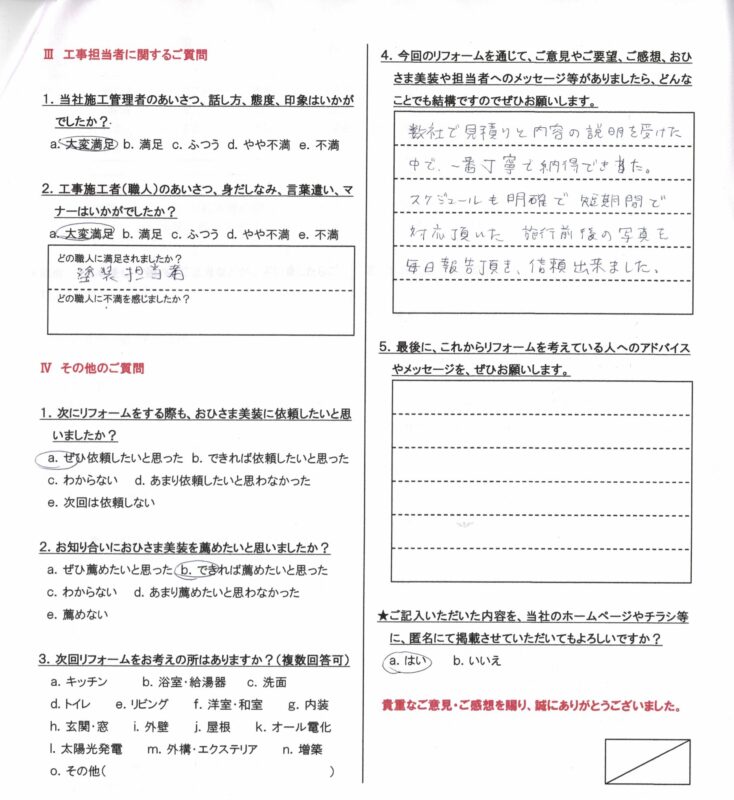 Ⅲ 工事担当者に関するご質問
1. 当社施工管理者のあいさつ、話し方、態度、印象はいかが
でしたか?
a. 大変満足 b. 満足 c. ふつう d. やや不満 e. 不満
2. 工事施工者(職人)のあいさつ、身だしなみ、言葉遣い、マ
ナーはいかがでしたか?
a. 大変満足 b. 満足 c. ふつう d. やや不満 e. 不満
どの職人に満足されましたか?
塗装担当者
どの職人に不満を感じましたか?
Ⅳ その他のご質問
1. 次にリフォームをする際も、おひさま美装に依頼したいと思
いましたか?
a. ぜひ依頼したいと思った b. できれば依頼したいと思った
c. わからない d. あまり依頼したいと思わなかった
e. 次回は依頼しない
2. お知り合いにおひさま美装を薦めたいと思いましたか?
a. ぜひ薦めたいと思った b. できれば薦めたいと思った
c. わからない d. あまり薦めたいと思わなかった
e. 薦めない
3. 次回リフォームをお考えの所はありますか?(複数回答可)
a. キッチン b. 浴室・給湯器 c. 洗面
d. トイレ e. リビング f. 洋室・和室 g. 内装
h. 玄関・窓 i. 外壁 j. 屋根 k. オール電化
l. 太陽光発電 m. 外構・エクステリア n. 増築
o. その他( )
4. 今回のリフォームを通じて、ご意見やご要望、ご感想、おひ
さま美装や担当者へのメッセージ等がありましたら、どんな
ことでも結構ですのでぜひお願いします。
数社で見積りと内容の説明を受けた
中で、一番丁寧で納得できた。
スケジュールも明確で短期間で
対応頂いた 施行前後の写真を
毎日報告頂き、信頼出来ました。
5. 最後に、これからリフォームを考えている人へのアドバイス
やメッセージを、ぜひお願いします。
★ご記入いただいた内容を、当社のホームページやチラシ等
に、匿名にて掲載させていただいてもよろしいですか?
a. はい b. いいえ
貴重なご意見・ご感想を賜り、誠にありがとうございました。